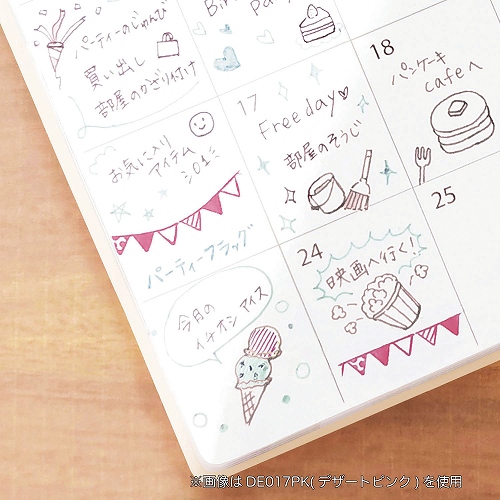 パーティーのじゅんび
買い出し
部屋のかざり付け
17
Free day
部屋のそうじ
18
パンケーキ
cafeへ
お気に入り
アイテム
01
パーティーフラッグ
24
映画へ行く!
25
今月の
イチオシ アイス
※画像はDE017PK(デザートピンク)を使用